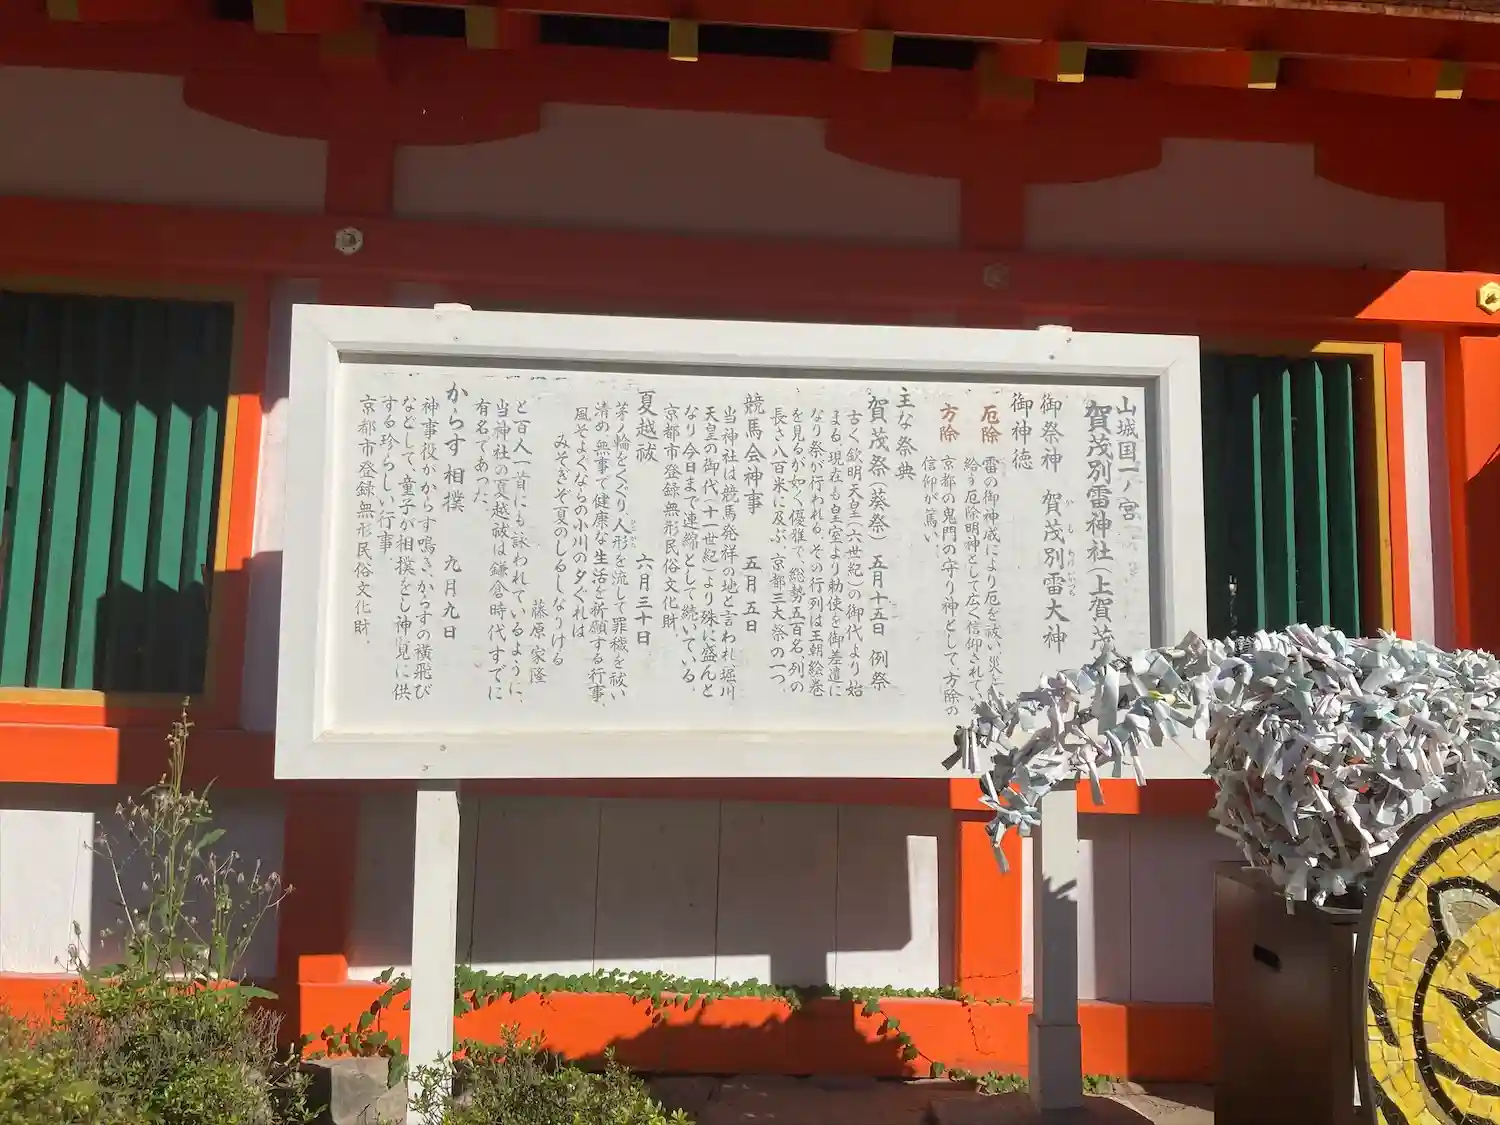 山城国一ノ宮
賀茂別雷神社(上賀茂
御祭神 賀茂別雷大神
御神徳
厄除 雷の御神威により厄を祓い災を
給う厄除明神として広く信仰されて
方除 京都の鬼門の守り神として、方除の
信仰が篤い
主な祭典
賀茂祭(葵祭) 五月十五日 例祭
古く欽明天皇(六世紀)の御代より始
まる。現在も皇室より勅使を御差遣に
なり祭が行われる。その行列は王朝絵巻
を見るが如く優雅で、総勢五百名、列の
長さ八百米に及ぶ。京都三大祭の一つ。
競馬会神事 五月五日
当神社は競馬発祥の地と言われ堀川
天皇の御代(十一世紀)より殊に盛んと
なり今日まで連綿として続いている。
京都市登録無形民俗文化財。
夏越祓 六月三十日
茅ノ輪をくぐり、人形を流して罪穢を祓い
清め無事で健康な生活を祈願する行事。
風そよぐならの小川の夕ぐれは
みそぎぞ夏のしるしなりける
藤原家隆
と百人一首にも詠われているように、
当神社の夏越祓は鎌倉時代すでに
有名であった。
からす相撲 九月九日
神事役がからす鳴き、からすの横飛び
などして、童子が相撲をし神覧に供
する珍らしい行事。
京都市登録無形民俗文化財。